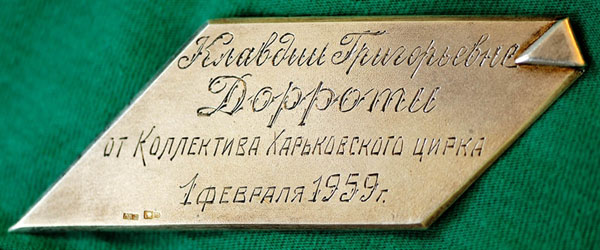 Клавдии Григорьевне
Дорроти
от Коллектива Харьковского цирка
1 февраля 1959 г.